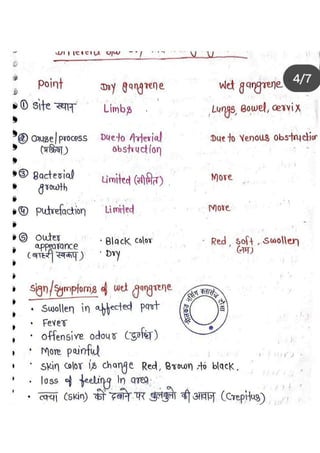 4/7
Point Dry gangrene Wet gangrene
① Site स्थान Limbs Lungs, Bowel, cervix
② Cause/process Due to Arterial Due to Venous obstruction
(प्रक्रिया) obstruction
③ Bacterial Limited (सीमित) More
growth
④ Putrefaction Limited More
⑤ Outer · Black color · Red, Soft, Swollen
appearance · Dry (नम)
(बाहरी स्वरूप)
Sign/Symptoms of wet gangrene
• Swollen in affected part
• Fever
• Offensive odour (दुर्गंध)
• More painful
• Skin color is change Red, Brown to black.
• loss of feeling in area
• त्वचा (skin) को दबाने पर बुलबुलो की आवाज (Crepitus)